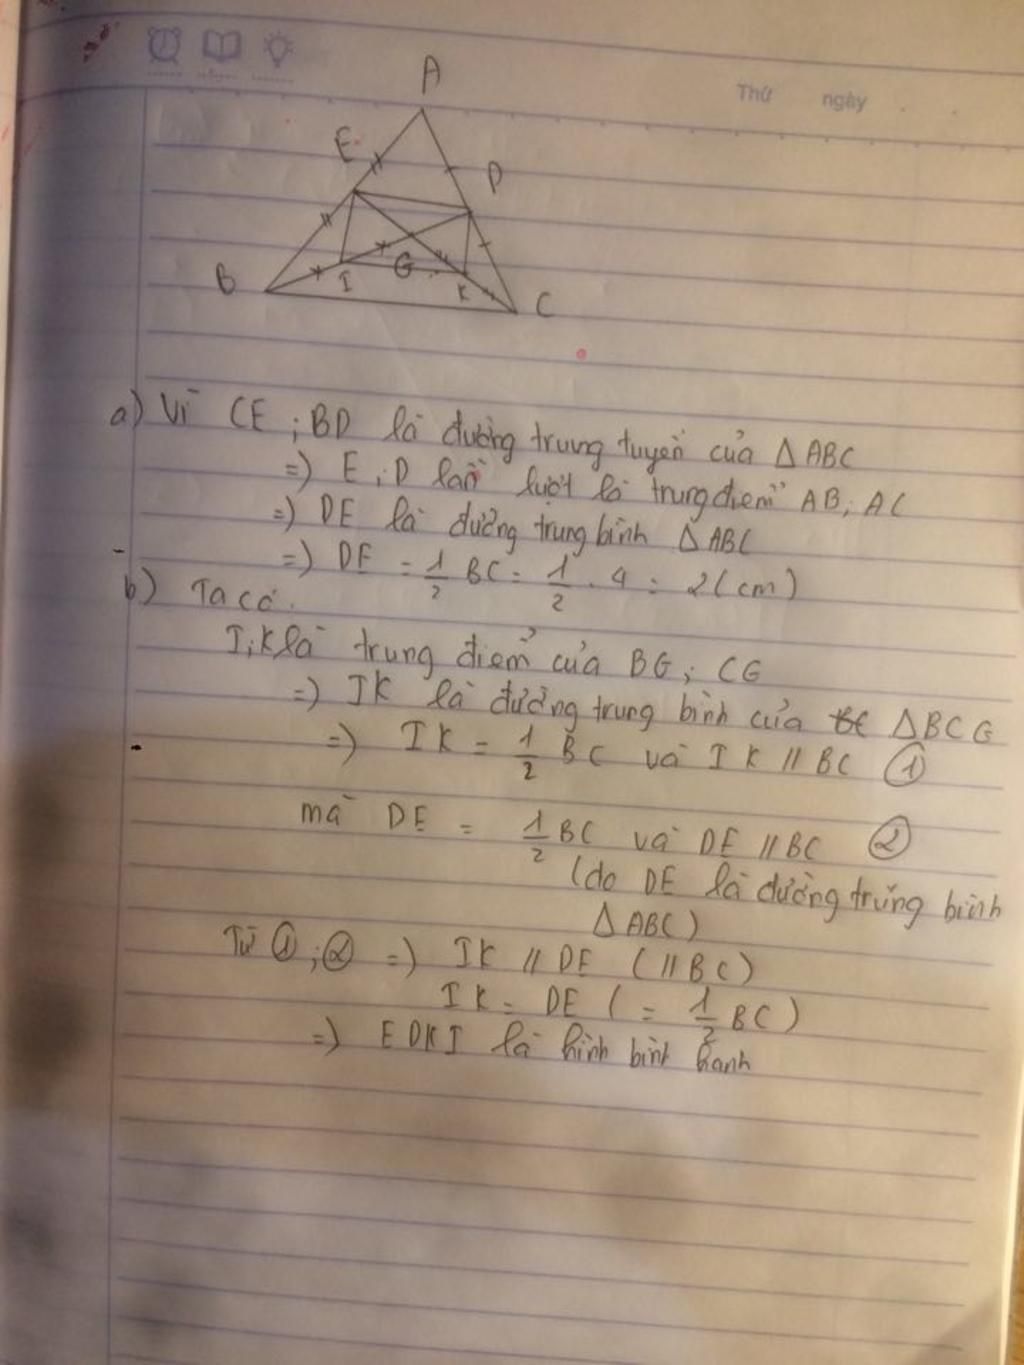 Thứ ngày
A
E
D
B
I
G
K
C
a) Vì CE ; BD là đường trung tuyến của Δ ABC
=) E ; D lần lượt là trung điểm AB ; AC
=) DE là đường trung bình Δ ABC
=) DE = 1/2 BC = 1/2 . 4 = 2 (cm)
b) Ta có.
I ; K là trung điểm của BG ; CG
=) IK là đường trung bình của Δ BCG
=) IK = 1/2 BC và IK // BC ①
mà DE = 1/2 BC và DE // BC ②
(do DE là đường trung bình
Δ ABC)
Từ ① ; ② =) IK // DE ( // BC )
IK = DE ( = 1/2 BC )
=) EDKI là hình bình hành